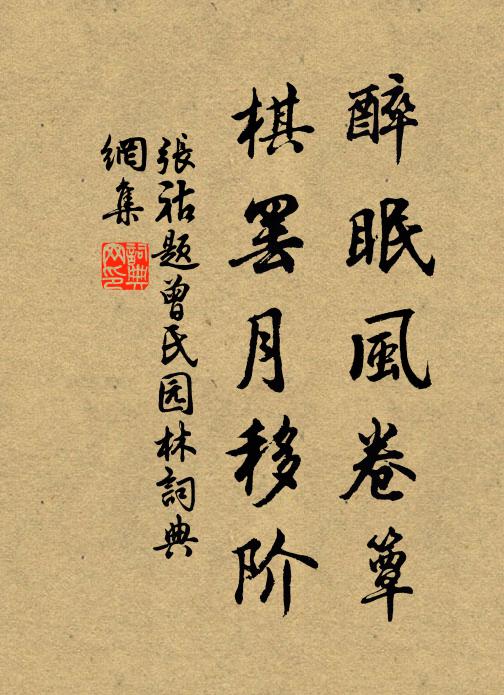 醉眠風卷簟
棋罢月移阶
張祜题曾氏园林詞典
網集
詞典网印